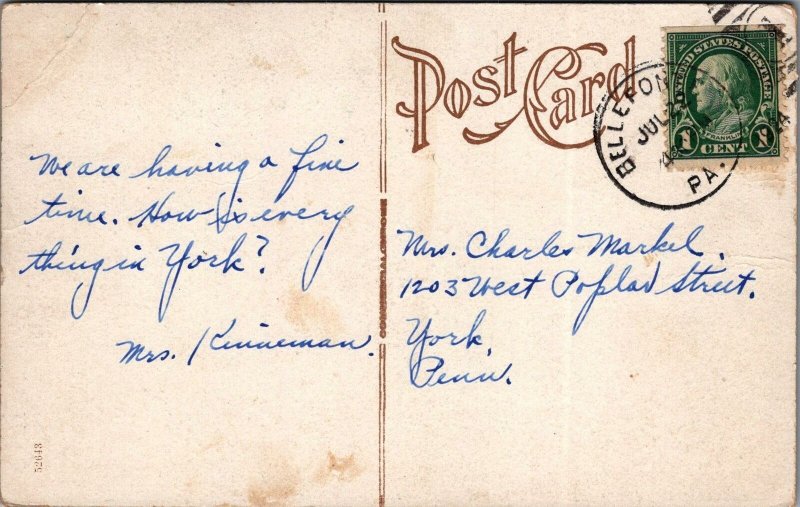 Post Card
UNITED STATES POSTAGE
FRANKLIN
1 CENT 1
BELLEFON
JUL
PA.
We are having a fine
time. How is every
thing in York?
Mrs. Kinneman.
Mrs. Charles Markel.
1203 West Poplar Street.
York
Penn.
52643